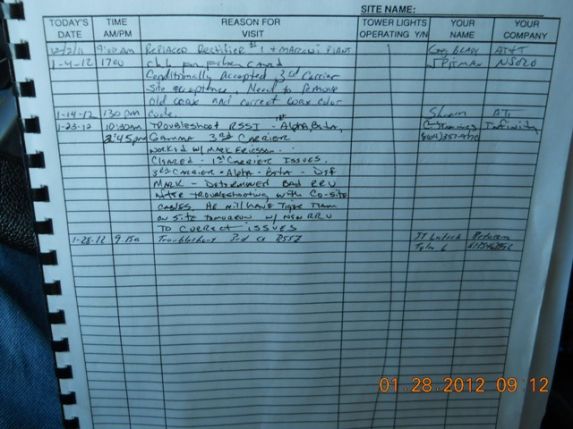 SITE NAME:
TODAY'S DATE TIME AM/PM REASON FOR VISIT TOWER LIGHTS OPERATING Y/N YOUR NAME YOUR COMPANY
12/2/11 9:00 AM Replaced Rectifier #1 + MARCONI PLANT AT&T
1-4-12 1700
Conditionally Accepted, 3rd Carrier
Site acceptance, Need to Remove
Old coax and correct coax color
1-14-12 130 pm Code.
1-23-12 10:30am TROUBLESHOOT RSSI - Alpha, Beta,
2:45pm Gamma 3rd CARRIER
WORKED W/ MARK ERICSSON
CLEARED - 1st CARRIER ISSUES.
3rd CARRIER - Alpha - Beta -
MARK - DETERMINED BAD RRU
AFTER TROUBLESHOOTING WITH CO-SITE
CABLES. HE WILL HAVE TIGER TEAM
ON SITE TOMORROW W/ NEW RRU
TO CORRECT ISSUES
1-28-12 9 Troubleshoot RSSI
01.28.2012 09:12